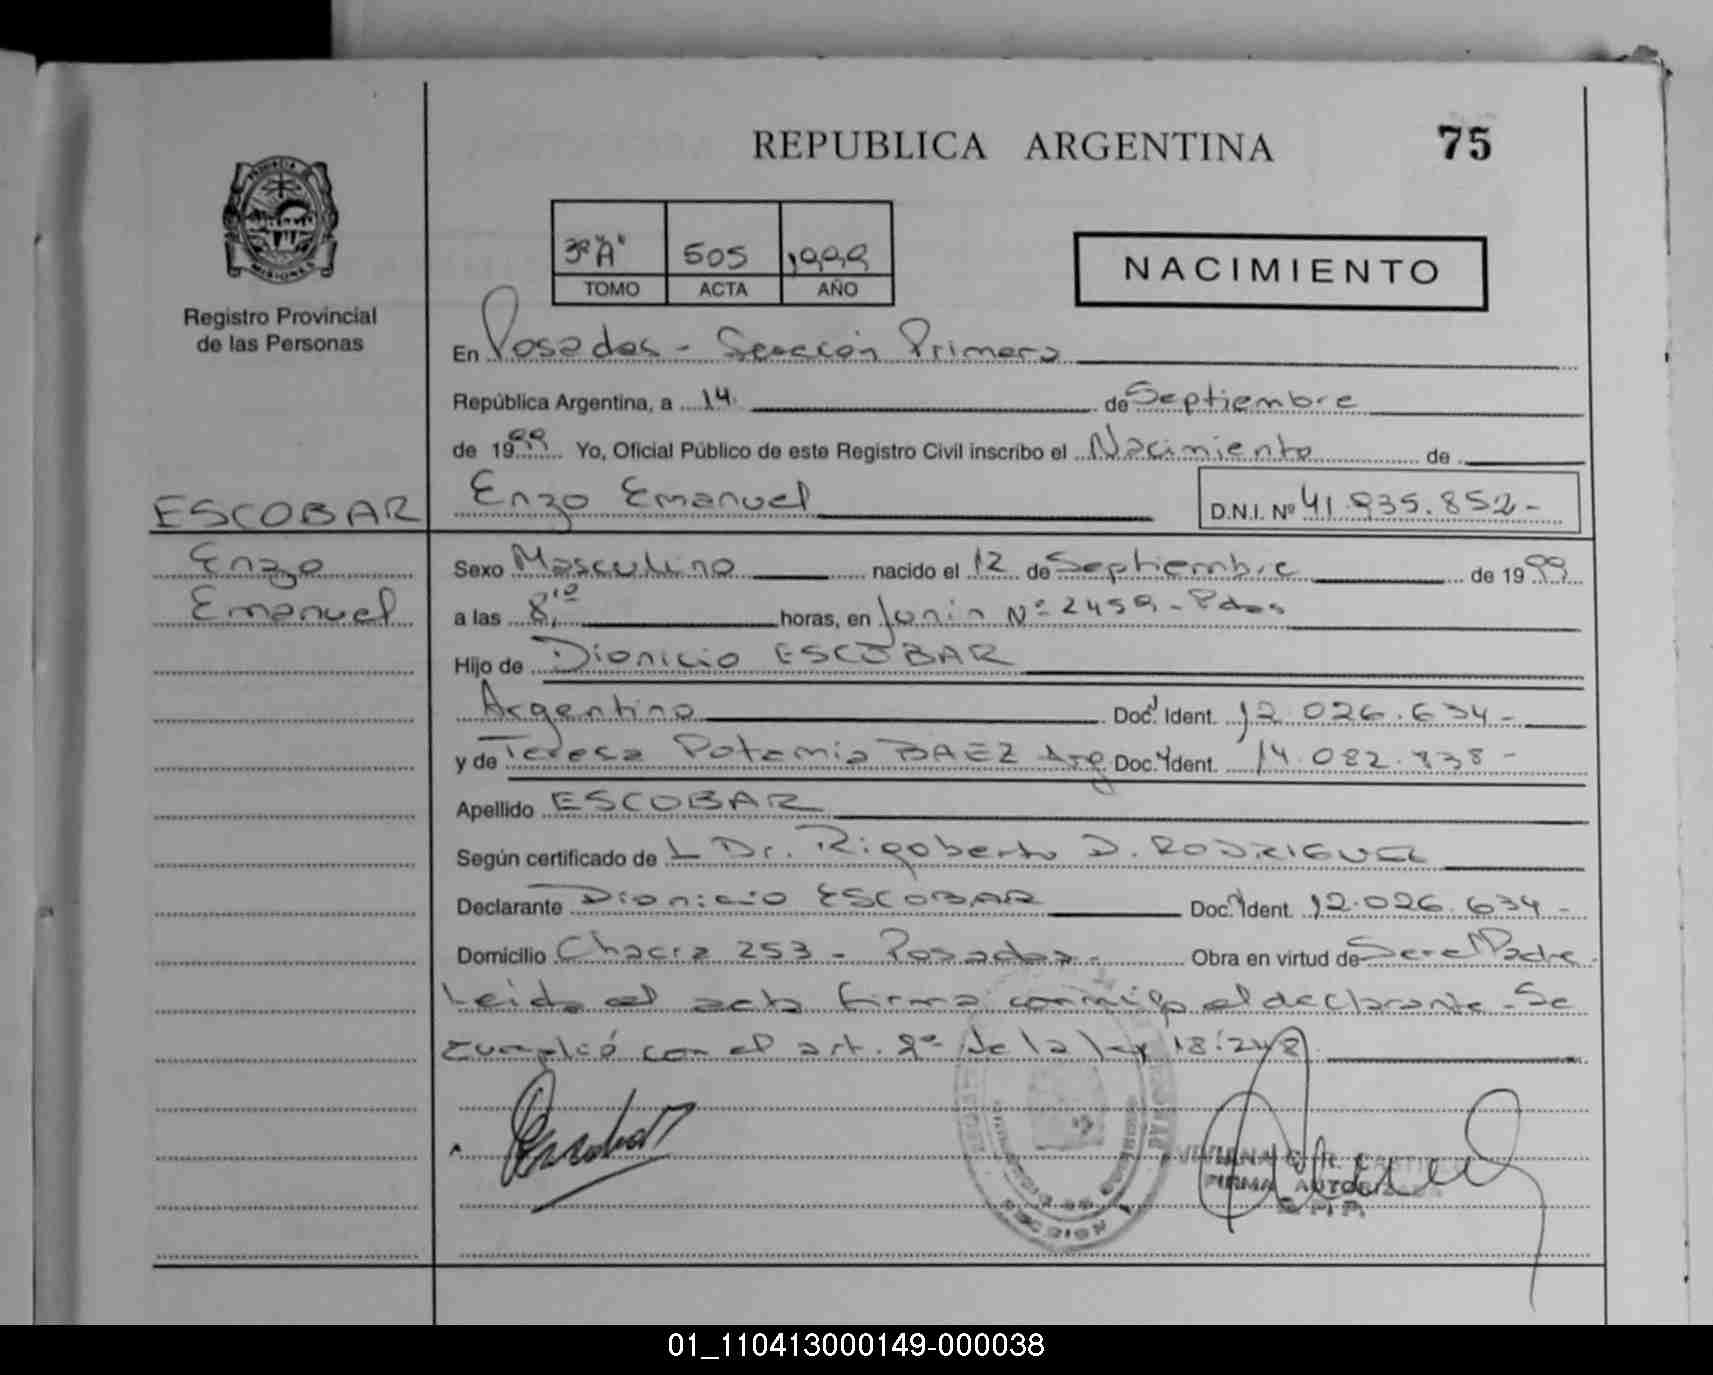 REPUBLICA ARGENTINA 75
PROVINCIA
MISIONES
Registro Provincial
de las Personas
3º "A" 505 1999
TOMO ACTA AÑO
NACIMIENTO
En Posadas - Sección Primera
República Argentina, a 14 de Septiembre
de 1999 Yo, Oficial Público de este Registro Civil inscribo el Nacimiento de
ESCOBAR Enzo Emanuel D.N.I. Nº 41.935.852-
Enzo Sexo Masculino nacido el 12 de Septiembre de 1999
Emanuel a las 8,10 horas, en Junin Nº 2459 - Pdas
Hijo de Dionicio ESCOBAR
Argentino Doc. Ident. 12.026.634-
y de Teresa Potamia BAEZ Arg Doc. Ident. 14.082.838-
Apellido ESCOBAR
Según certificado de L Dr. Rigoberto D. RODRIGUEZ
Declarante Dionicio ESCOBAR Doc. Ident. 12.026.634-
Domicilio Chacra 253 - Posadas - Obra en virtud de Ser el Padre
Leida el acta firma conmigo el declarante - Se
cumplió con el art. 2º de la ley 18.248
VIVIANA R. CASTILLO
FIRMA AUTORIZADA
01_110413000149-000038